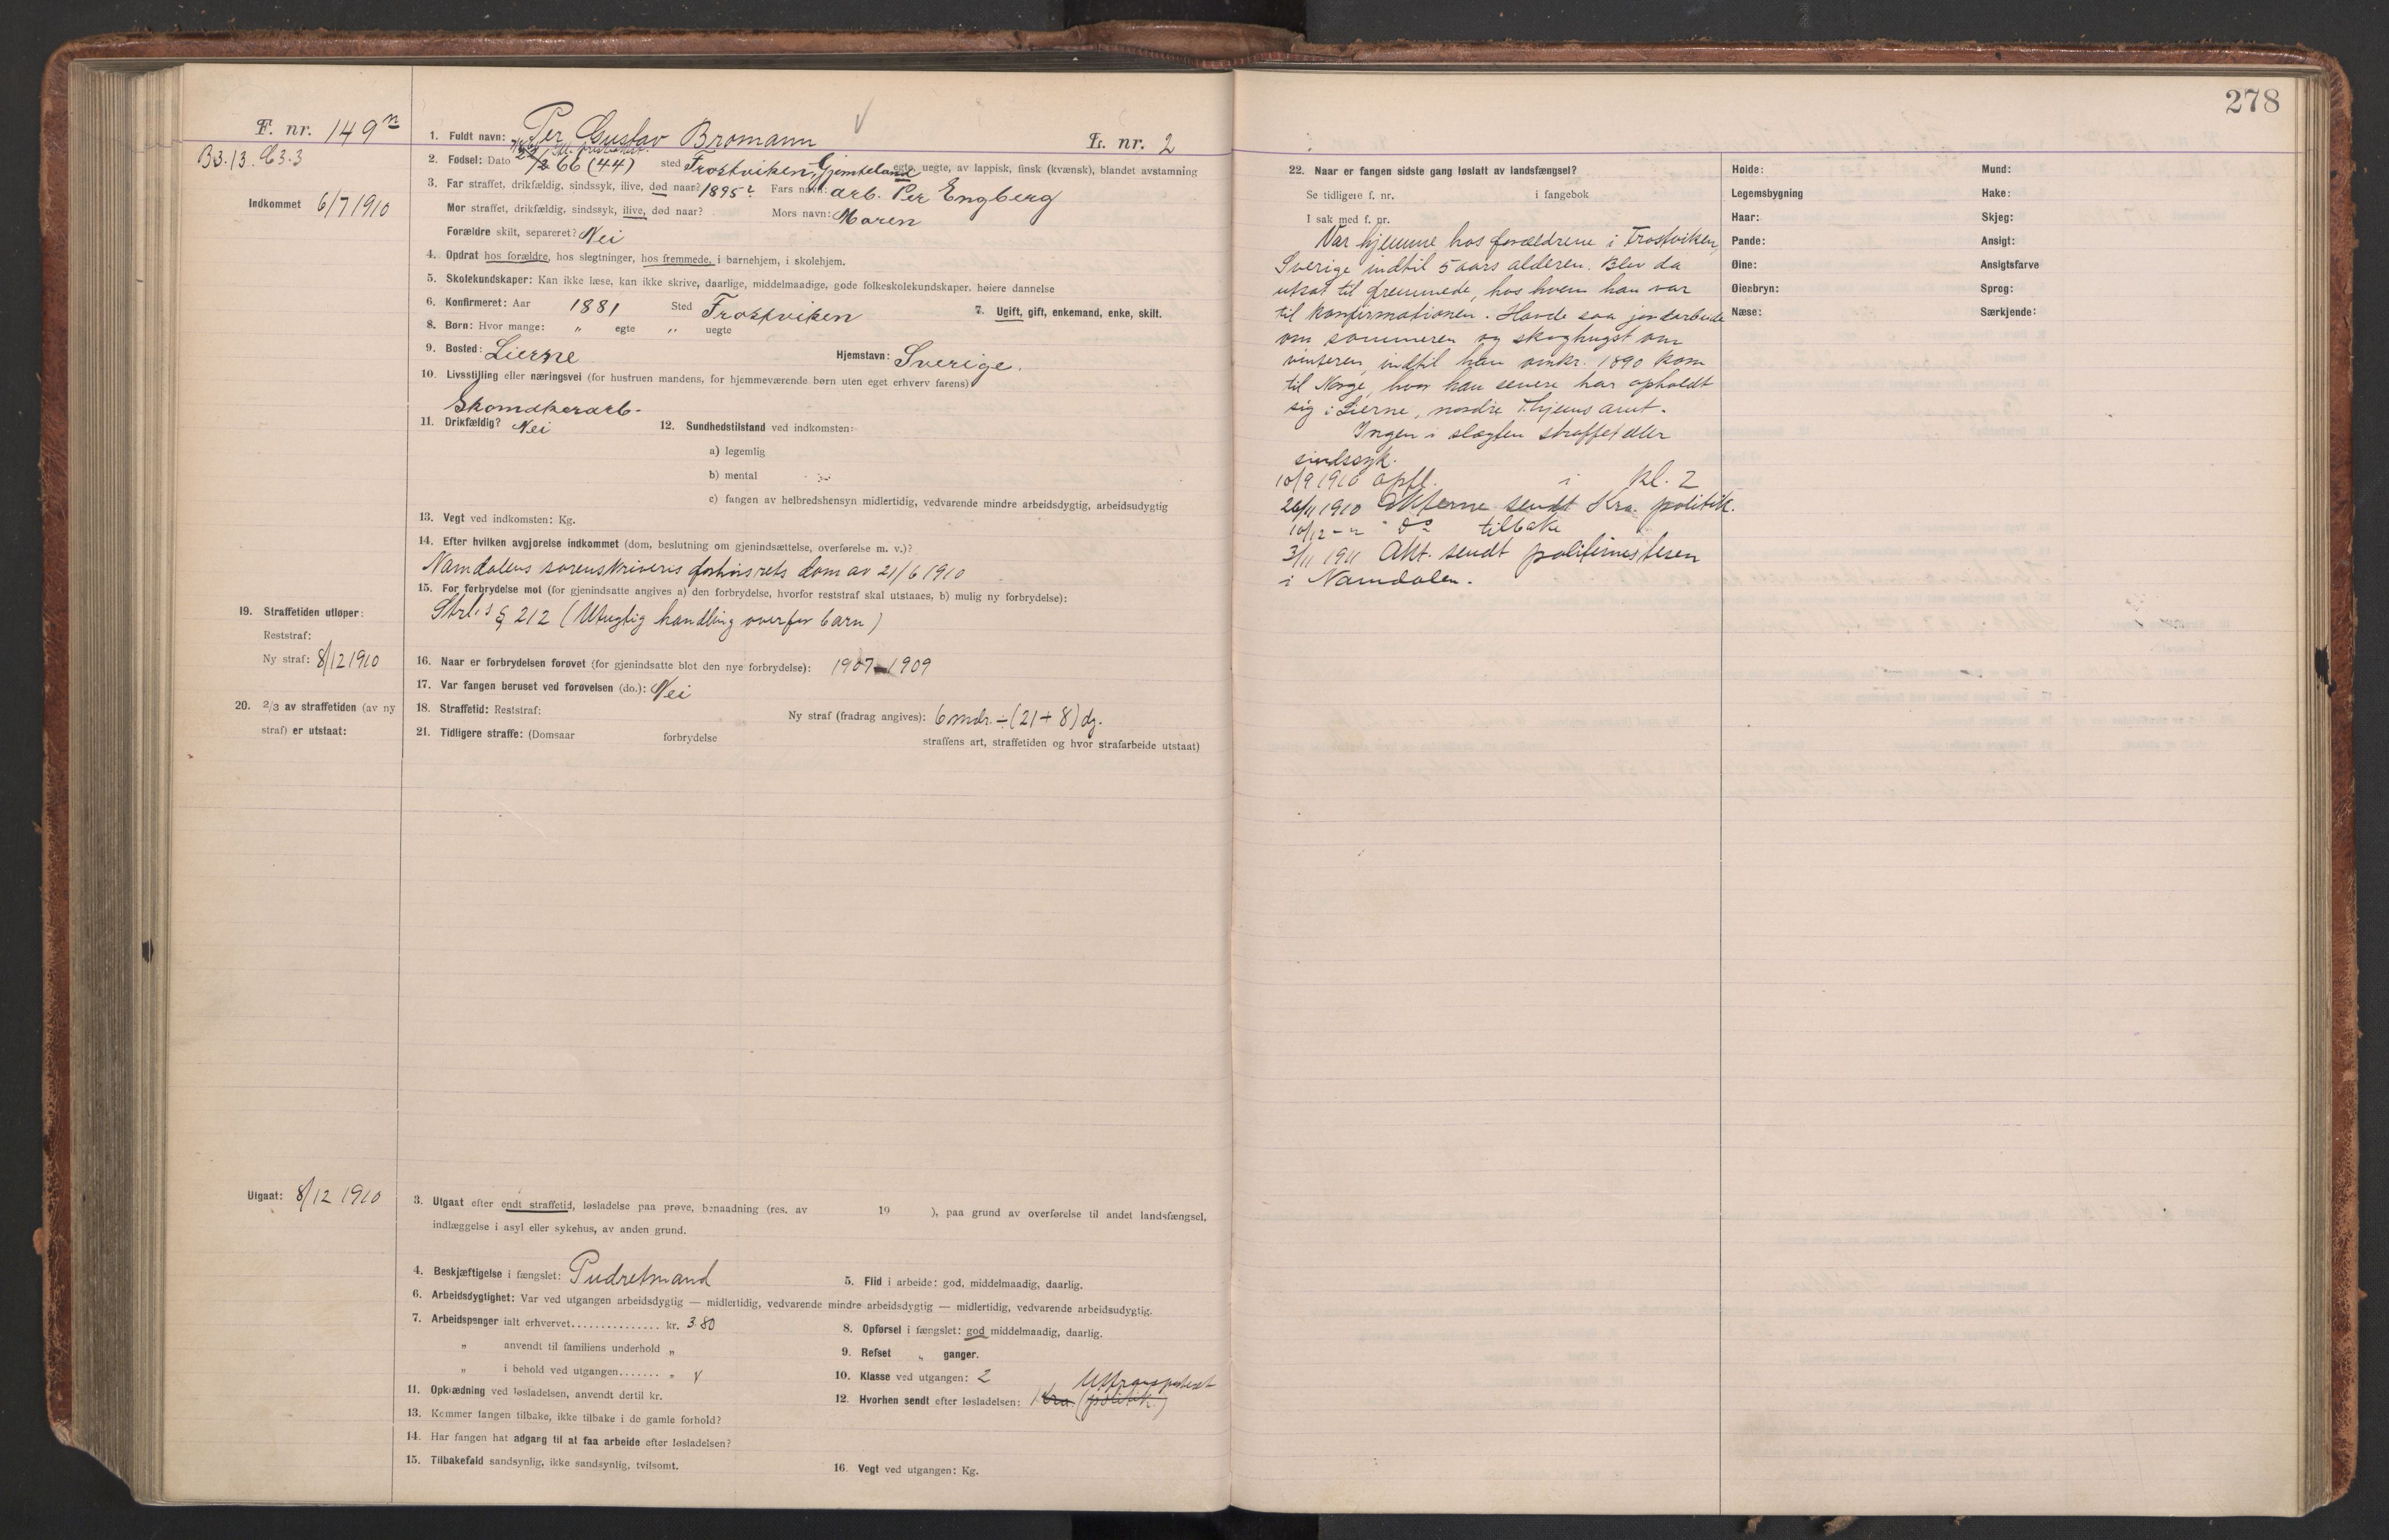 278
F. nr. 149
B3.13. C3.3
Indkommet 6/7 1910
1. Fuldt navn: Per Gustav Bromann
L. nr. 2
2. Fødsel: Dato 66 (44) sted Frostviken, Gjemteland egte, uegte, av lappisk, finsk (kvænsk), blandet avstamning
3. Far straffet, drikfældig, sindssyk, ilive, død naar? 1895? Fars navn: arb. Per Engberg
Mor straffet, drikfældig, sindssyk, ilive, død naar? Mors navn: Maren
Forældre skilt, separeret? Nei
4. Opdrat hos forældre, hos slegtninger, hos fremmede, i barnehjem, i skolehjem.
5. Skolekundskaper: Kan ikke læse, kan ikke skrive, daarlige, middelmaadige, gode folkeskolekundskaper, høiere dannelse
6. Konfirmeret: Aar 1881 Sted Frostviken 7. Ugift, gift, enkemand, enke, skilt.
8. Børn: Hvor mange: " egte " uegte
9. Bosted: Lierne Hjemstavn: Sverige.
10. Livsstilling eller næringsvei (for hustruen mandens, for hjemmeværende børn uten eget erhverv farens)
Skomakerarb.
11. Drikfældig? Nei 12. Sundhedstilstand ved indkomsten:
a) legemlig
b) mental
c) fangen av helbredshensyn midlertidig, vedvarende mindre arbeidsdygtig, arbeidsudygtig
13. Vegt ved indkomsten: Kg.
14. Efter hvilken avgjørelse indkommet (dom, beslutning om gjenindsættelse, overførelse m. v.)?
Namdalens sorenskriveris forhørsrets dom av 21/6 1910
15. For forbrydelse mot (for gjenindsatte angives a) den forbrydelse, hvorfor reststraf skal utstaaes, b) mulig ny forbrydelse):
Strl.s § 212 (Utugtig handling overfor barn)
19. Straffetiden utløper:
Reststraf:
Ny straf: 8/12 1910
16. Naar er forbrydelsen forøvet (for gjenindsatte blot den nye forbrydelse): 1907-1909
17. Var fangen beruset ved forøvelsen (do.): Nei
20. 2/3 av straffetiden (av ny
straf) er utstaat:
18. Straffetid: Reststraf: Ny straf (fradrag angives): 6 mdr. ÷ (21 + 8) dg.
21. Tidligere straffe: (Domsaar forbrydelse straffens art, straffetiden og hvor strafarbeide utstaat)
Utgaat: 8/12 1910
3. Utgaat efter endt straffetid, løsladelse paa prøve, benaadning (res. av 19 ), paa grund av overførelse til andet landsfængsel,
indlæggelse i asyl eller sykehus, av anden grund.
4. Beskjæftigelse i fængslet: Pudretmand 5. Flid i arbeide: god, middelmaadig, daarlig.
6. Arbeidsdygtighet: Var ved utgangen arbeidsdygtig — midlertidig, vedvarende mindre arbeidsdygtig — midlertidig, vedvarende arbeidsudygtig.
7. Arbeidspenger ialt erhvervet............... kr. 3.80
8. Opførsel i fængslet: god middelmaadig, daarlig.
" anvendt til familiens underhold "
9. Refset " ganger.
" i behold ved utgangen....... "
10. Klasse ved utgangen: 2
11. Opklædning ved løsladelsen, anvendt dertil kr.
12. Hvorhen sendt efter løsladelsen: Kra. (politik.)
13. Kommer fangen tilbake, ikke tilbake i de gamle forhold?
14. Har fangen hat adgang til at faa arbeide efter løsladelsen?
15. Tilbakefald sandsynlig, ikke sandsynlig, tvilsomt. 16. Vegt ved utgangen: Kg.
22. Naar er fangen sidste gang løslatt av landsfængsel?
Se tidligere f. nr. i fangebok
I sak med f. nr.
Var hjemme hos forældrene i Frostviken,
Sverige indtil 5 aars alderen. Blev da
utsat til fremmede, hos hvem han var
til konfirmationen. Havde saa jordarbeide
om sommeren og skoghugst om
vinteren, indtil han omkr. 1890 kom
til Norge, hvor han senere har opholdt
sig i Lierne, nordre Thjems amt.
Ingen i slegten straffet eller
sindssyk.
10/9 1910 opfl. i kl. 2
26/11 1910 Akterne sendt Kra. politik.
10/12 - " - do tilbake
3/11 1911 Akt. sendt politimesteren
i Namdalen.
Høide: Mund:
Legemsbygning Hake:
Haar: Skjeg:
Pande: Ansigt:
Øine: Ansigtsfarve
Øienbryn: Sprog:
Næse: Særkjende: